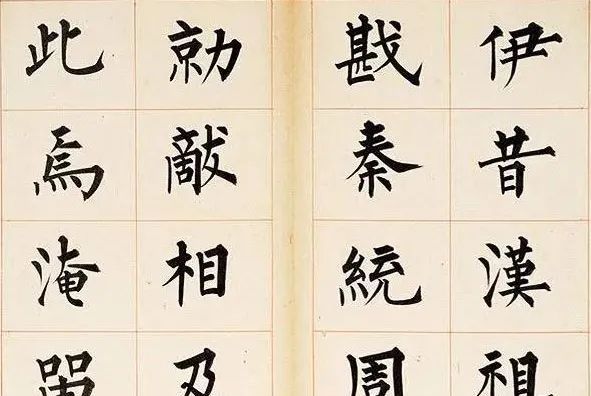 伊昔漢祖
戡秦統周
勍敵相及
此焉淹